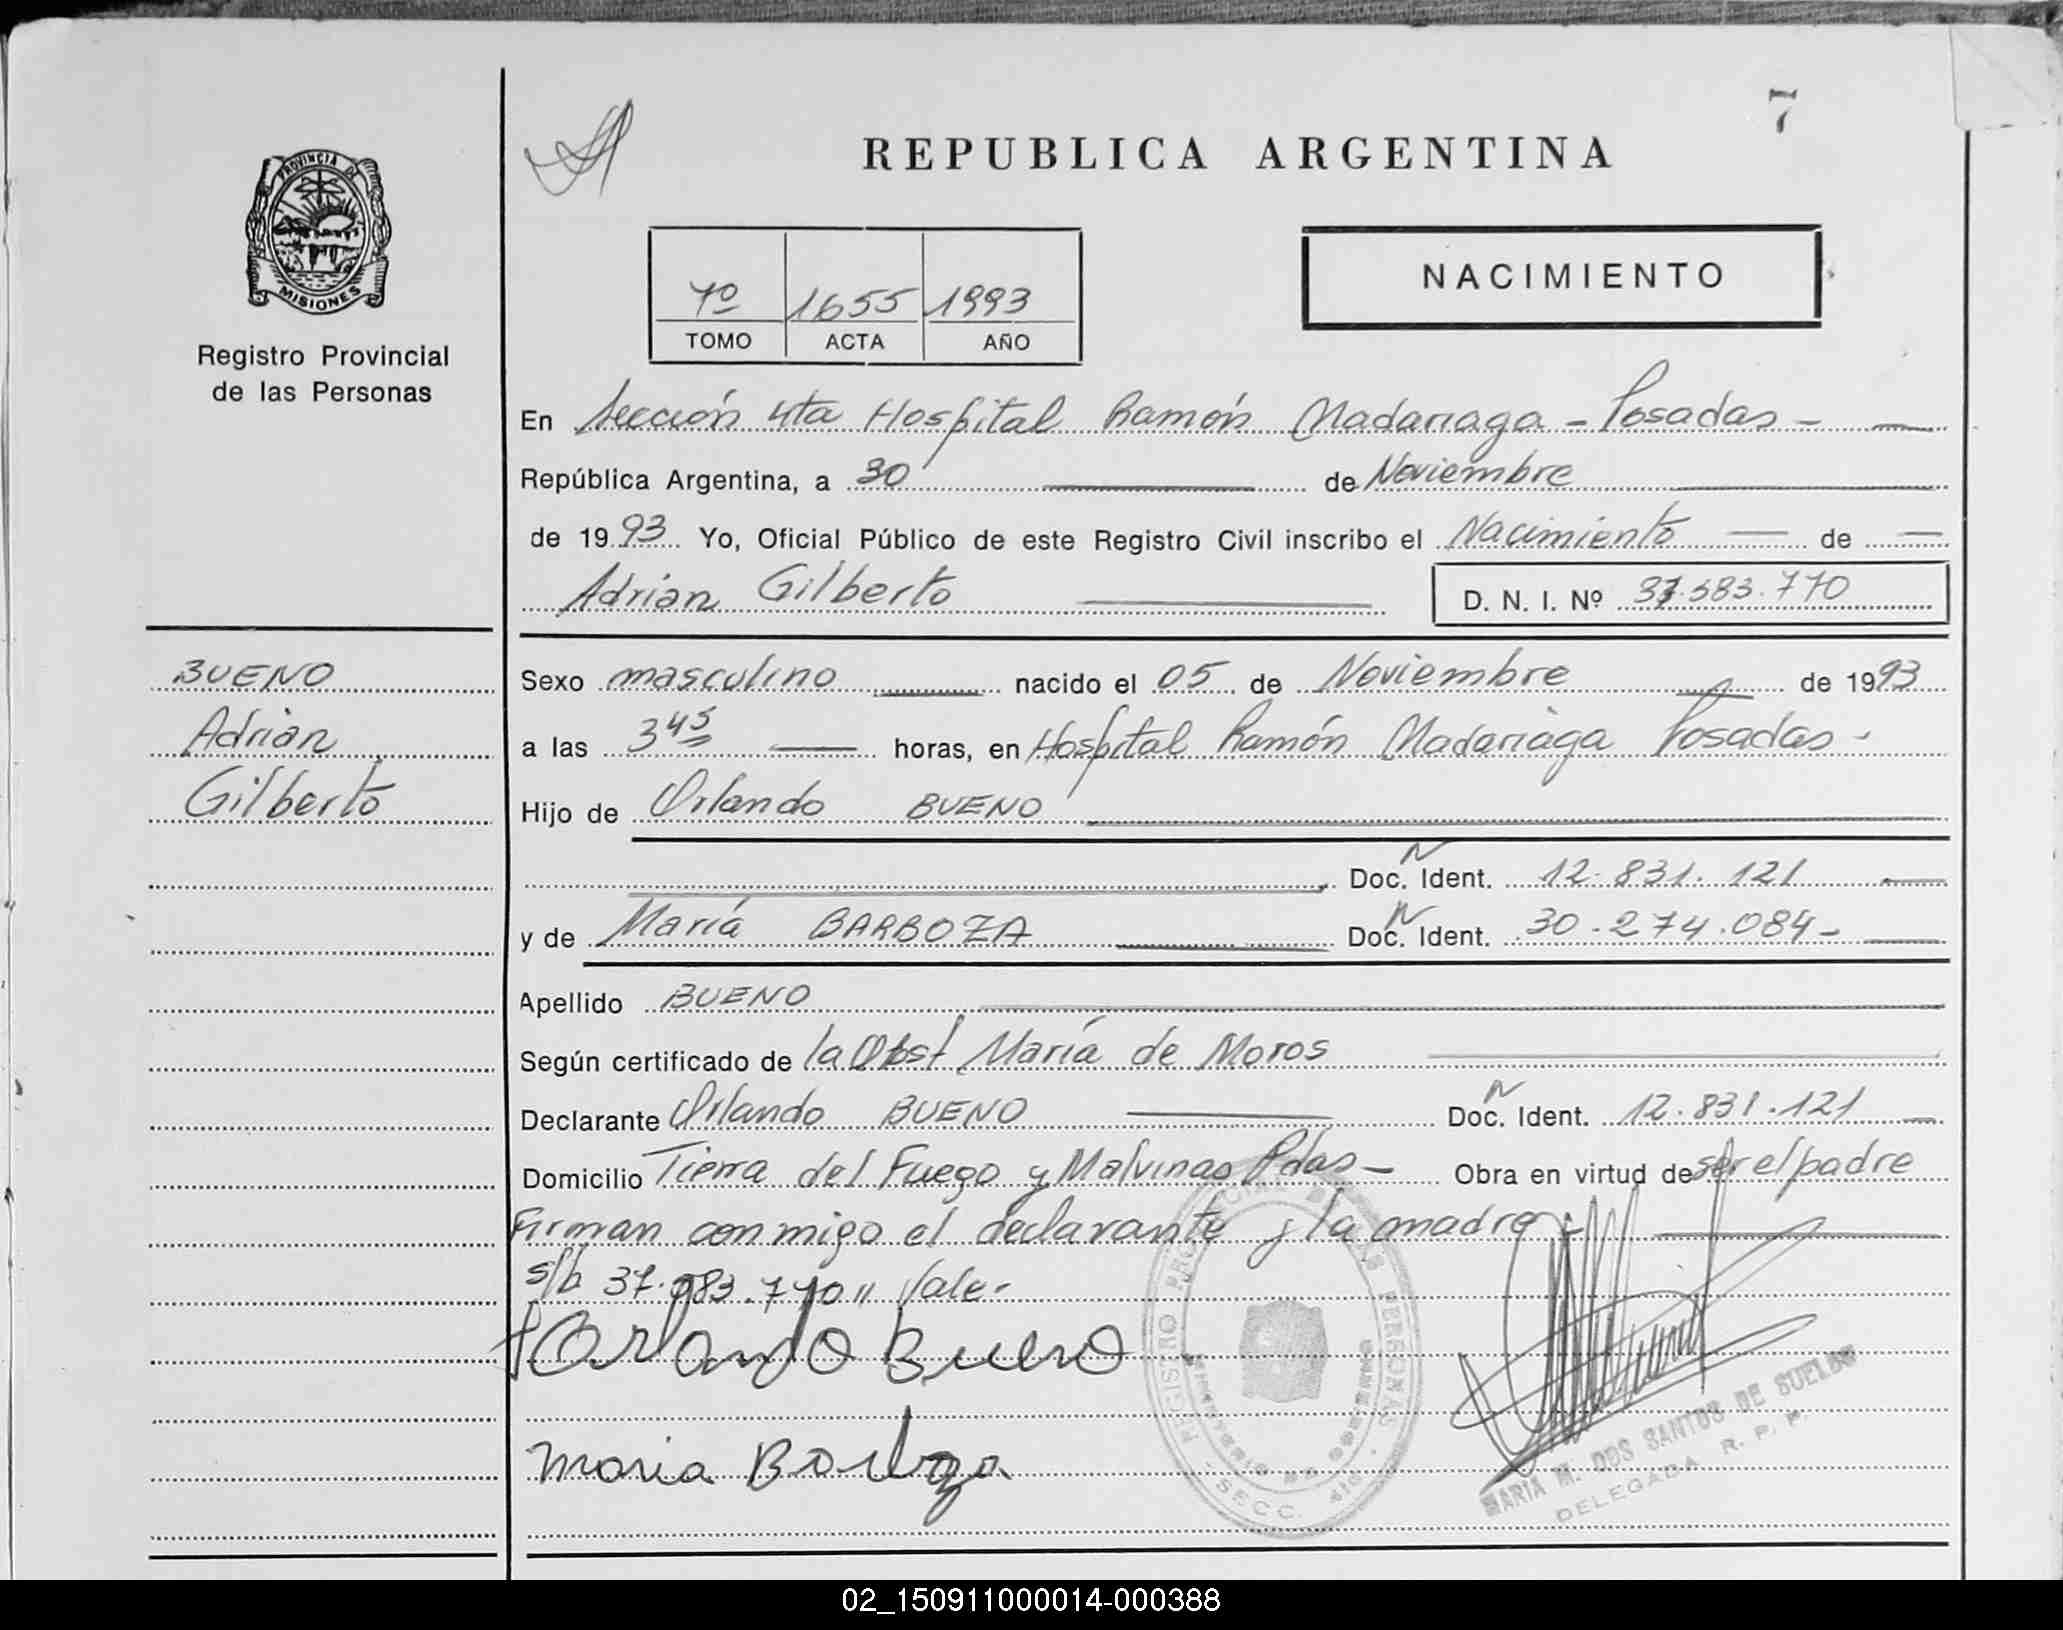 7
REPUBLICA ARGENTINA
PROVINCIA DE
MISIONES
Registro Provincial
de las Personas
NACIMIENTO
7º 1655 1993
TOMO ACTA AÑO
En Sección 4ta Hospital Ramón Madariaga - Posadas -
República Argentina, a 30 de Noviembre
de 1993 Yo, Oficial Público de este Registro Civil inscribo el Nacimiento de
Adrian Gilberto D. N. I. Nº 37.583.770
BUENO
Adrian
Gilberto
Sexo masculino nacido el 05 de Noviembre de 1993
a las 3 45 horas, en Hospital Ramón Madariaga Posadas -
Hijo de Orlando BUENO
Doc. Ident. 12.831.121
y de María BARBOZA Doc. Ident. 30.274.084-
Apellido BUENO
Según certificado de la Obst María de Moros
Declarante Orlando BUENO Doc. Ident. 12.831.121
Domicilio Tierra del Fuego y Malvinas Pdas- Obra en virtud de ser el padre
Firman conmigo el declarante y la madre.
s/b 37. 770 " Vale-
Orlando Bueno
Maria Barboza
REGISTRO PROVINCIAL DE LAS PERSONAS
MINISTERIO DE GOBIERNO
SECC. 4ta
MARIA M. DOS SANTOS DE SUELDO
DELEGADA R. P. P.
02_150911000014-000388